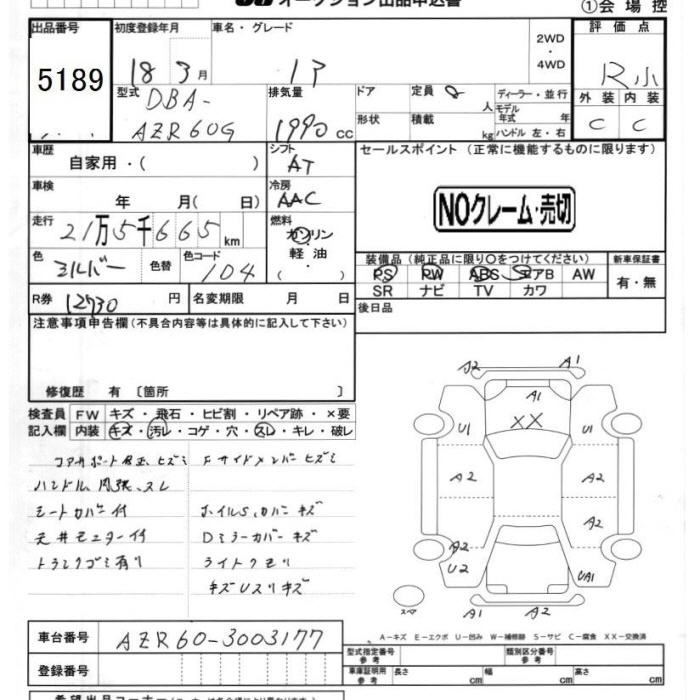 オークション出品申込書
①会場控
出品番号 初度登録年月 車名・グレード 2WD・4WD 評価点
5189 18 3月 R小
型式 排気量 ドア 定員 8 人 ディーラー・並行 外装 内装
DBA-
AZR60G 1990 cc 形状 積載 kg モデル年式 年 ハンドル 左・右 C C
車歴 自家用・( ) シフト AT セールスポイント (正常に機能するものに限ります)
車検 年 月( 日) 冷房 AAC
NOクレーム・売切
走行 21万5千665 km 燃料 ガソリン 軽油 ・( )
色 シルバー 色替 色コード 104
装備品 (純正品に限り○をつけてください) 新車保証書
PS PW ABS エアB AW 有・無
SR ナビ TV カワ
R券 12730 円 名変期限 月 日 後日品
注意事項申告欄(不具合内容等は具体的に記入して下さい)
修復歴 有 〔箇所 〕
検査員 FW キズ・飛石・ヒビ割・リペア跡・×要
記入欄 内装 キズ・汚レ・コゲ・穴・スレ・キレ・破レ
コアサポート Fサイドメンバーヒズミ
ハンドル スレ
シートカバー付 ホイルS、カバーキズ
天井モニター付 Dミラーカバーキズ
トランクゴミ有り ライトクモリ
キズUスリキズ
A2 A1
A1
XX
U1 U1
A2 A2
A2
A2
U2 UA1
スペア A1 A2
A-キズ E-エクボ U-凹み W-補修跡 S-サビ C-腐食 XX-交換済
車台番号 AZR60-3003177
登録番号
型式指定番号 参考 類別区分番号 参考
車庫証明用 参考 長さ cm 幅 cm 高さ cm